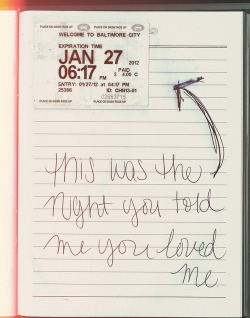 PLACE ON DASH FACE UP PLACE ON DASH FACE UP
WELCOME TO BALTIMORE CITY
EXPIRATION TIME
JAN 27 2012
06:17 PM
PAID
$ 4.00 C
ENTRY: 01/27/12 at 04:17 PM
25396 ID: CHN13-01
PLACE ON DASH FACE UP PLACE ON DASH FACE UP
this was the
night you told
me you loved
me